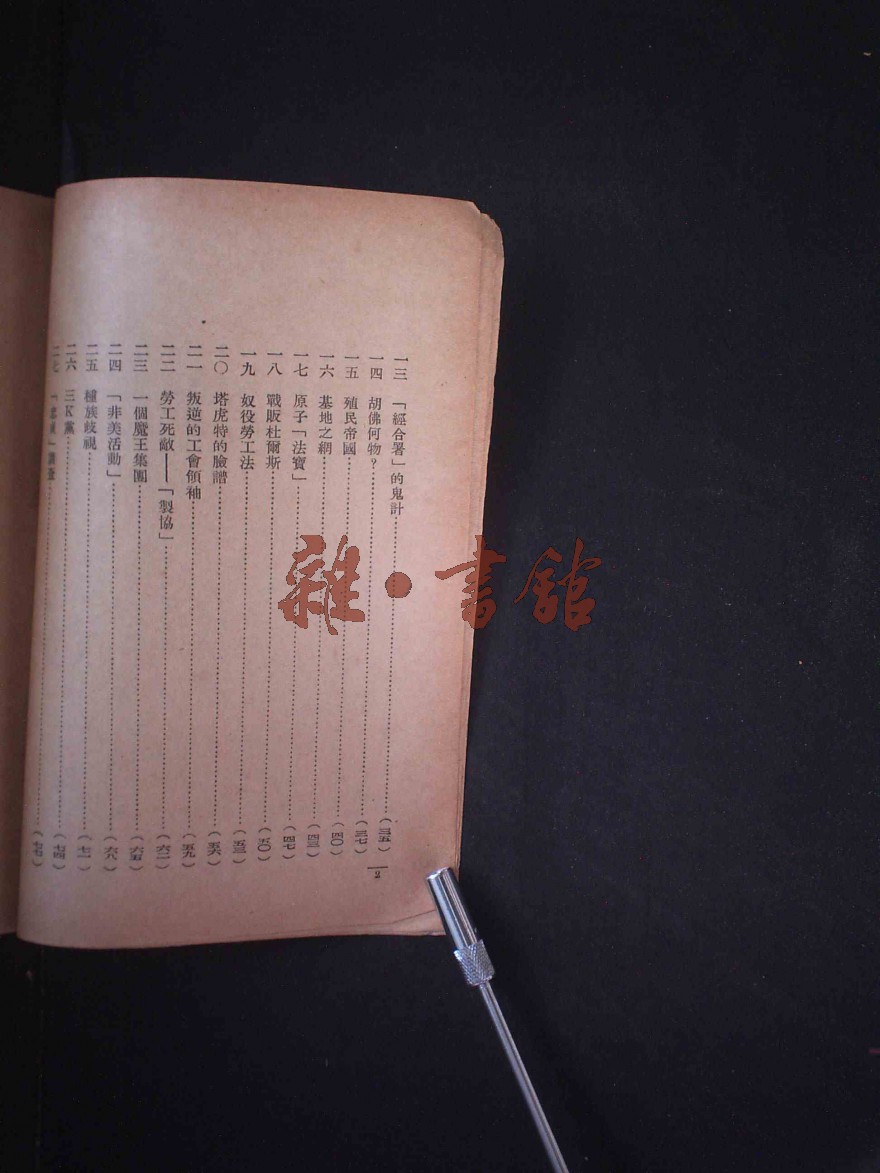 一三 「經合署」的鬼計（三五）
一四 胡佛何物？（三七）
一五 殖民帝國（四〇）
一六 基地之網（四三）
一七 原子「法寶」（四七）
一八 戰販杜爾斯（五〇）
一九 奴役勞工法（五三）
二〇 塔虎特的臉譜（五六）
二一 叛逆的工會領袖（五九）
二二 勞工死敵——「製協」（六二）
二三 一個魔王集團（六五）
二四 「非美活動」（六八）
二五 種族歧視（七一）
二六 三K黨（七四）
二七（七七）
2
雜·書館